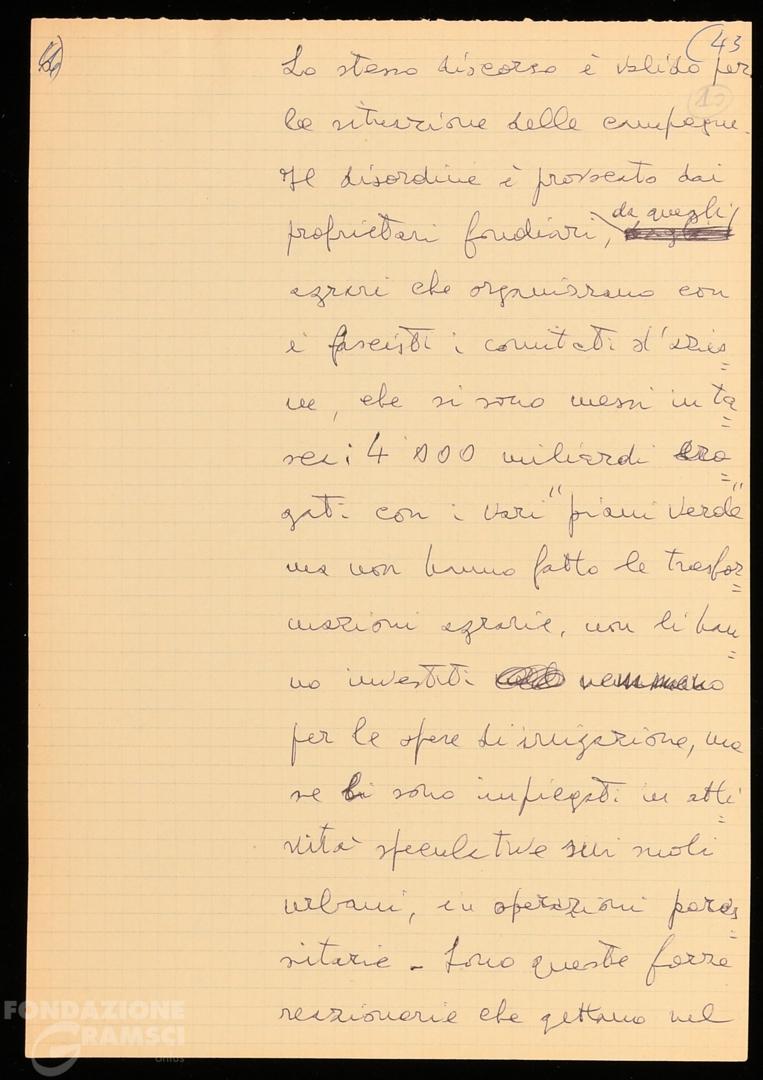 (43
Lo stesso discorso è valido per
la situazione delle campagne.
Il disordine è provocato dai
da quegli
proprietari fondiari,
agrari che organizzano con
i fascisti i comitati d'azio=
ne, che si sono messi in ta=
sca i 4000 miliardi ero=
gati con i vari "piani verde"
ma non hanno fatto le trasfor=
mazioni agrarie, non li han=
no investiti nemmeno
per le opere di irrigazione, ma
se li sono impiegati in atti=
vità speculative sui suoli
urbani, in operazioni paras=
sitarie - Sono queste forze
reazionarie che gettano nel
FONDAZIONE
GRAMSCI
onlus